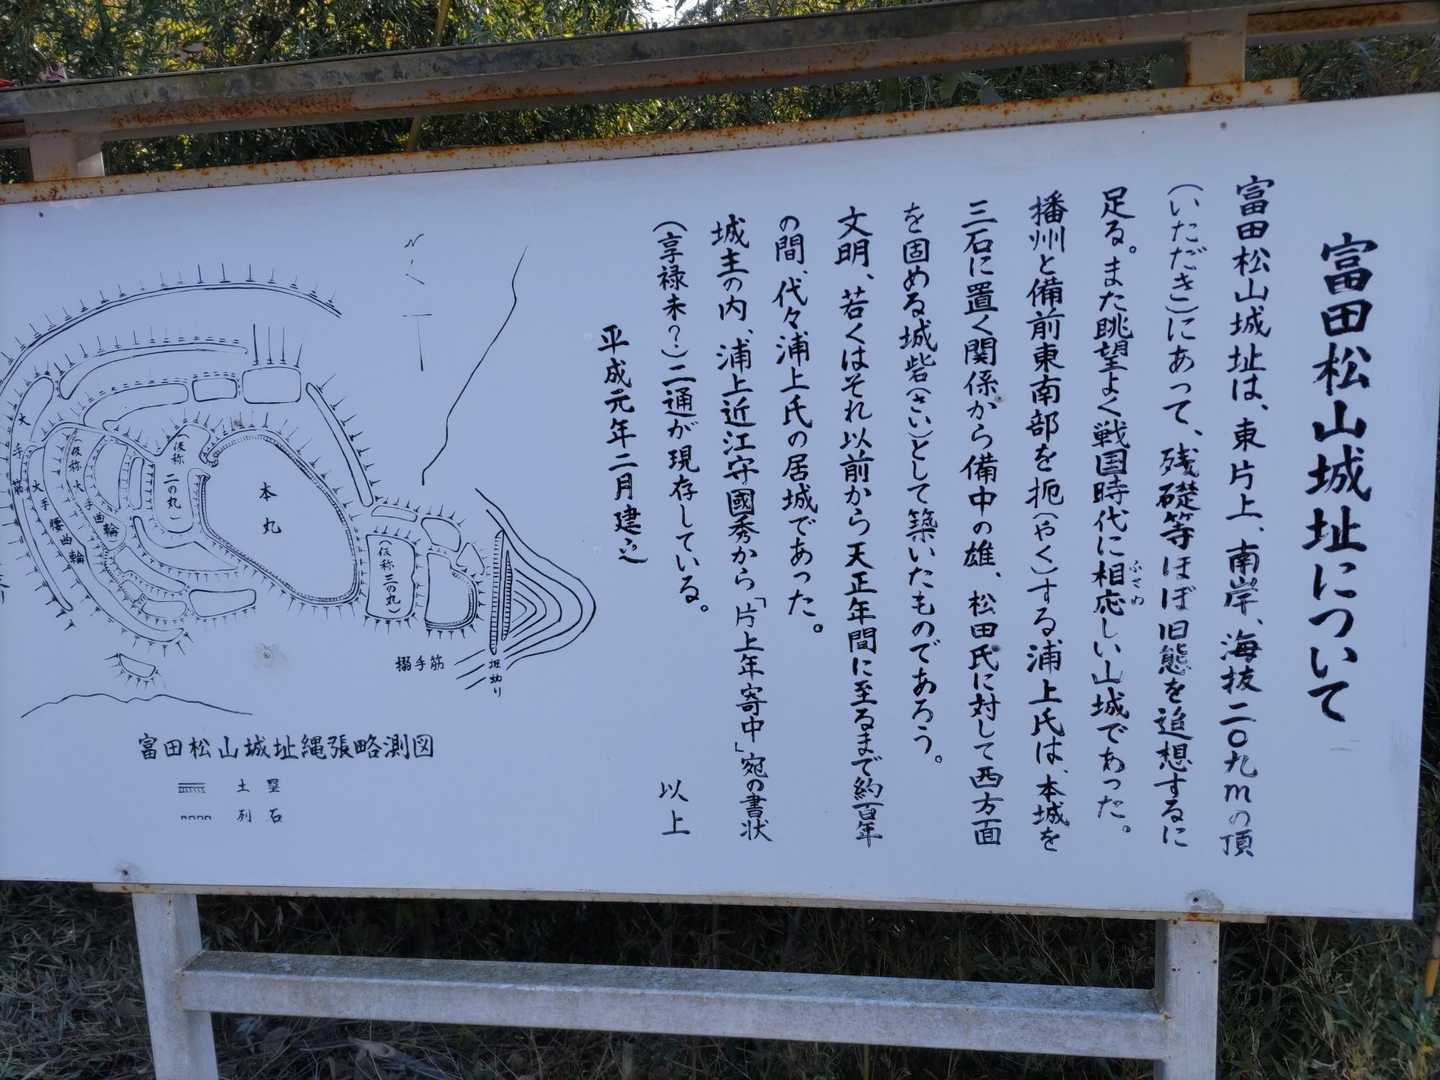 富田松山城址について
富田松山城址は、東片上、南岸、海抜二〇九mの頂
(いただき)にあって、残礎等ほぼ旧態を追想するに
足る。また眺望よく戦国時代に相応しい山城であった。
ふさわ
播州と備前東南部を扼(やく)する浦上氏は、本城を
三石に置く関係から備中の雄、松田氏に対して西方面
を固める城砦(さい)として築いたものであろう。
文明、若くはそれ以前から天正年間に至るまで約百年
の間、代々浦上氏の居城であった。
城主の内、浦上近江守國秀から「片上年寄中」宛の書状
(享禄末?)二通が現存している。
以上
平成元年二月建之
N
大手筋
大手腰曲輪
(仮称大手曲輪
(仮称二の丸)
本丸
(仮称三の丸)
搦手筋
堀切り
富田松山城址縄張略測図
土塁
列石